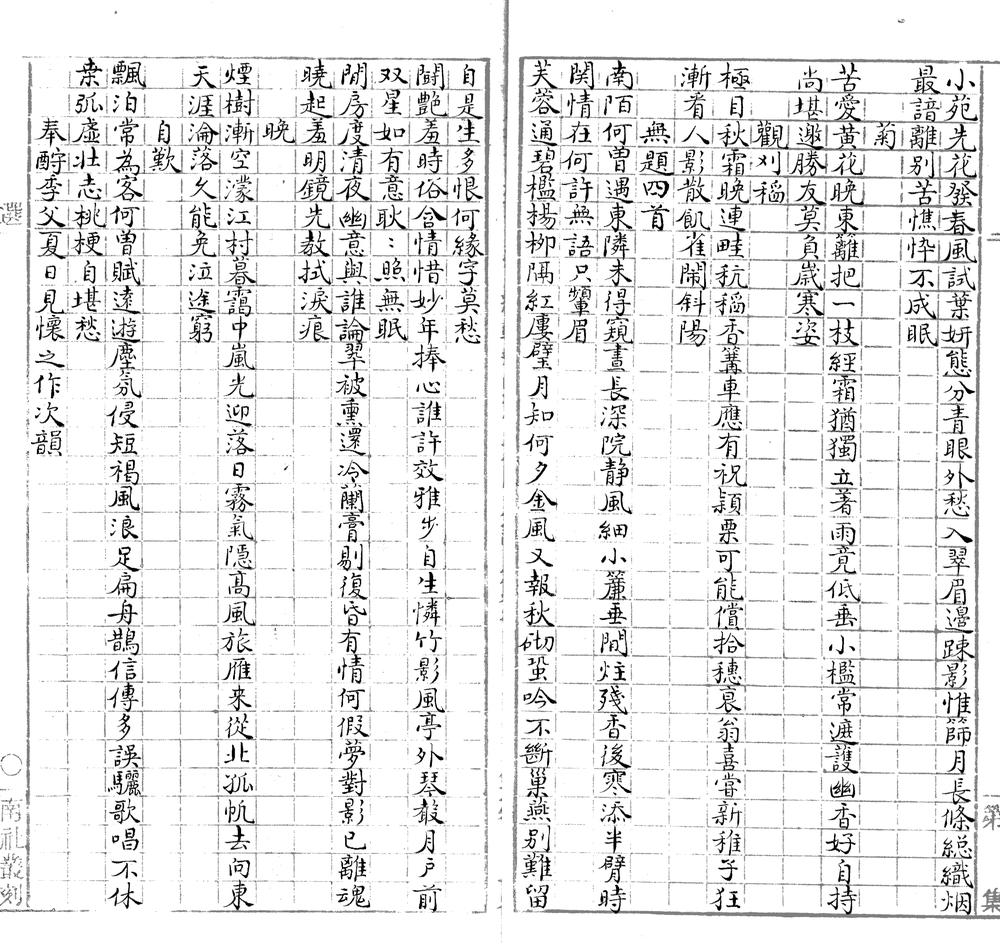 小苑先花發春風試葉妍態分青眼外愁入翠眉邊踈影惟篩月長條總織烟
最諳離別苦憔悴不成眠
菊
苦愛黃花晚東籬把一枝經霜猶獨立著雨竟低垂小檻常遮護幽香好自持
尚堪邀勝友莫負歲寒姿
觀刈稻
極目秋霜晚連畦秔稻香篝車應有祝穎栗可能償拾穗哀翁喜嘗新稚子狂
漸看人影散飢雀鬧斜陽
無題四首
南陌何曾遇東隣未得窺晝長深院静風細小簾垂閒炷殘香後寒添半臂時
関情在何許無語只顰眉
芙蓉通碧檻楊柳隔紅廔璧月知何夕金風又報秋砌蛩吟不斷巢燕别難留
自是生多恨何緣字莫愁
鬪艷羞時俗含情惜妙年捧心誰許效雅步自生憐竹影風亭外琴聲月戶前
双星如有意耿〻照無眠
閒房度清夜幽意與誰論翠被熏還冷蘭膏剔復昏有情何假夢對影已離魂
曉起羞明鏡先教拭淚痕
晚
煙樹漸空濛江村暮靄中嵐光迎落日霧氣隱高風旅雁来從北孤帆去向東
天涯淪落久能免泣途窮
自歎
飄泊常為客何曾賦遠遊塵氛侵短褐風浪足扁舟鵲信傳多誤驪歌唱不休
桒弧虛壯志桃梗自堪愁
奉酧季父夏日見懷之作次韻
第 集
二
選
〇
南社叢刻